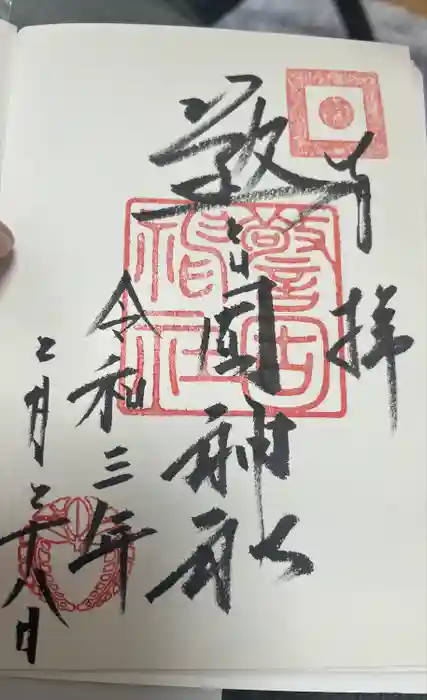 奉拝
警固神社
令和三年
二月二十八日
警固神社